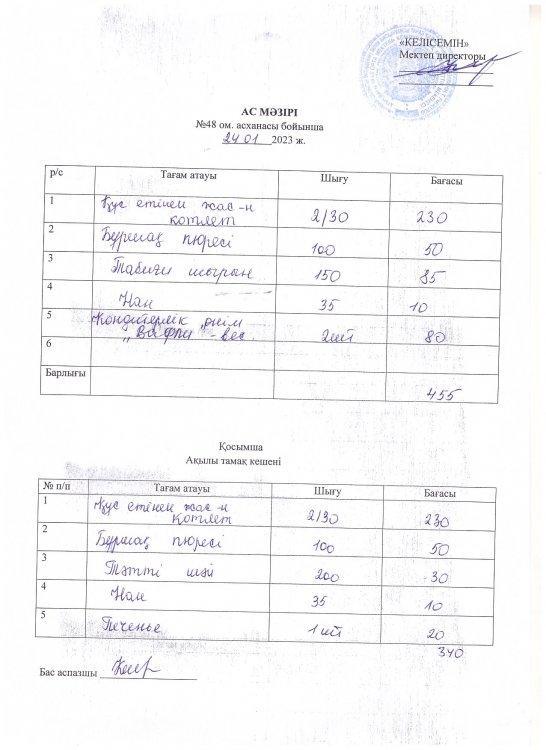 «КЕЛІСЕМІН»
Мектеп директоры
АС МӘЗІРІ
№48 ом. асханасы бойынша
24 01 2023 ж.
р/с Тағам атауы Шығу Бағасы
1 Құс етінен жас-н
котлет 2/30 230
2 Бұршақ пюресі 100 50
3 Табиғи шырын 150 85
4 Нан 35 10
5 Кондитерлік өнім
„Вафли -вес. 2шт 80
6
Барлығы 455
Қосымша
Ақылы тамақ кешені
№ п/п Тағам атауы Шығу Бағасы
1 Құс етінен жас-н
котлет 2/30 230
2 Бұршақ пюресі 100 50
3 Тәтті шай 200 30
4 Нан 35 10
5 Печенье 1 шт 20
340
Бас аспазшы